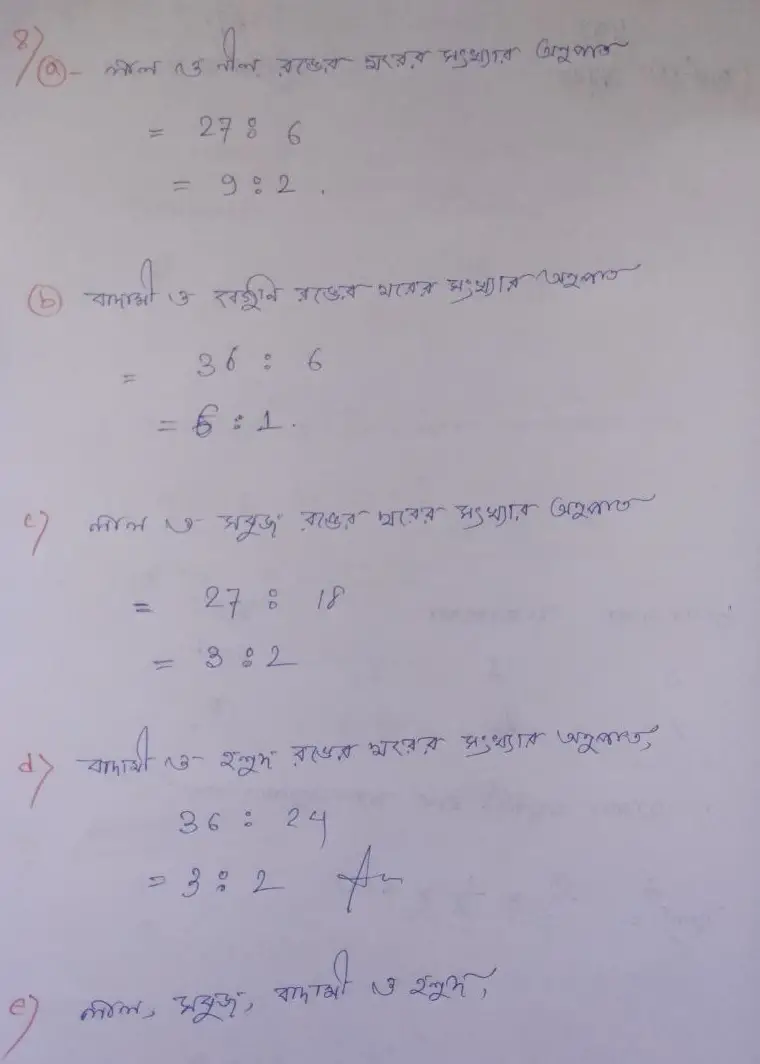 8) (a) - লাল ও নীল রঙের ঘরের সংখ্যার অনুপাত
= 27 : 6
= 9 : 2 .
(b) বাদামী ও বেগুনি রঙের ঘরের সংখ্যার অনুপাত
= 36 : 6
= 6 : 1 .
c) লাল ও সবুজ রঙের ঘরের সংখ্যার অনুপাত
= 27 : 18
= 3 : 2
d) বাদামী ও হলুদ রঙের ঘরের সংখ্যার অনুপাত,
36 : 24
= 3 : 2
e) লাল, সবুজ, বাদামী ও হলুদ,